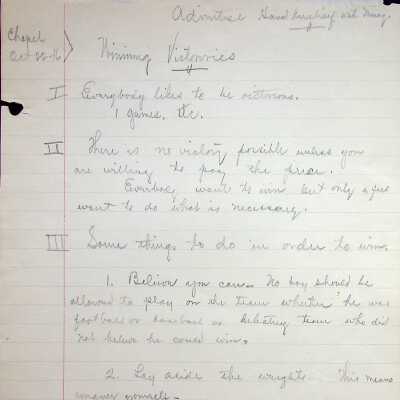 Chapel
Oct 22-16
Winning Victorries
I Everybody likes to be victorious.
1 games, etc.
II There is no victory possible unless you
are willing to pay the price.
Everbody want to win but only a few
want to do what is necessary.
III Some things to do in order to win.
1. Believe you can. No boy should be
allowed to play on the team whether he was
football or baseball or debating team who did
not believe he could win.
2. Lay aside the weights. This means